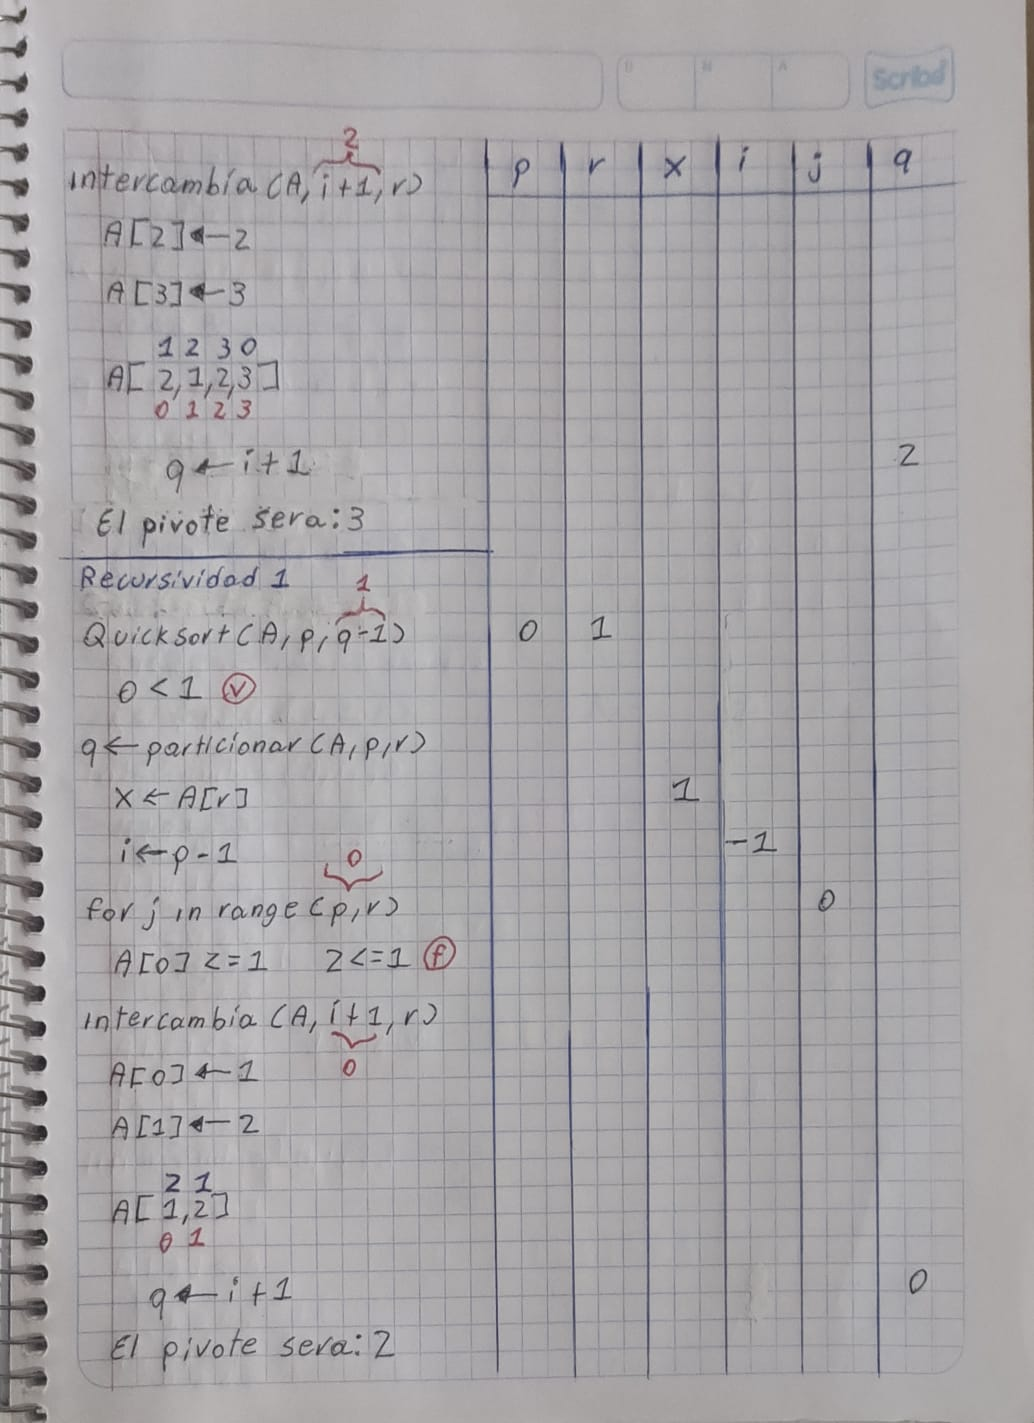 Scribd
D M A
2
p r x i j q
intercambia (A, i+1, r)
A[2]←2
A[3]←3
1 2 3 0
A[ 2,1,2,3 ]
0 1 2 3
q ← i+1 2
El pivote sera: 3
Recursividad 1 1
Quicksort (A, p, q-1) 0 1
0 < 1 (v)
q ← particionar (A, p, r)
x ← A[r] 1
i ← p-1 -1
0
for j in range (p, r) 0
A[0] <= 1 2 <= 1 (f)
intercambia (A, i+1, r)
0
A[0] ← 1
A[1] ← 2
2 1
A[ 1,2 ]
0 1
q ← i+1 0
El pivote sera: 2